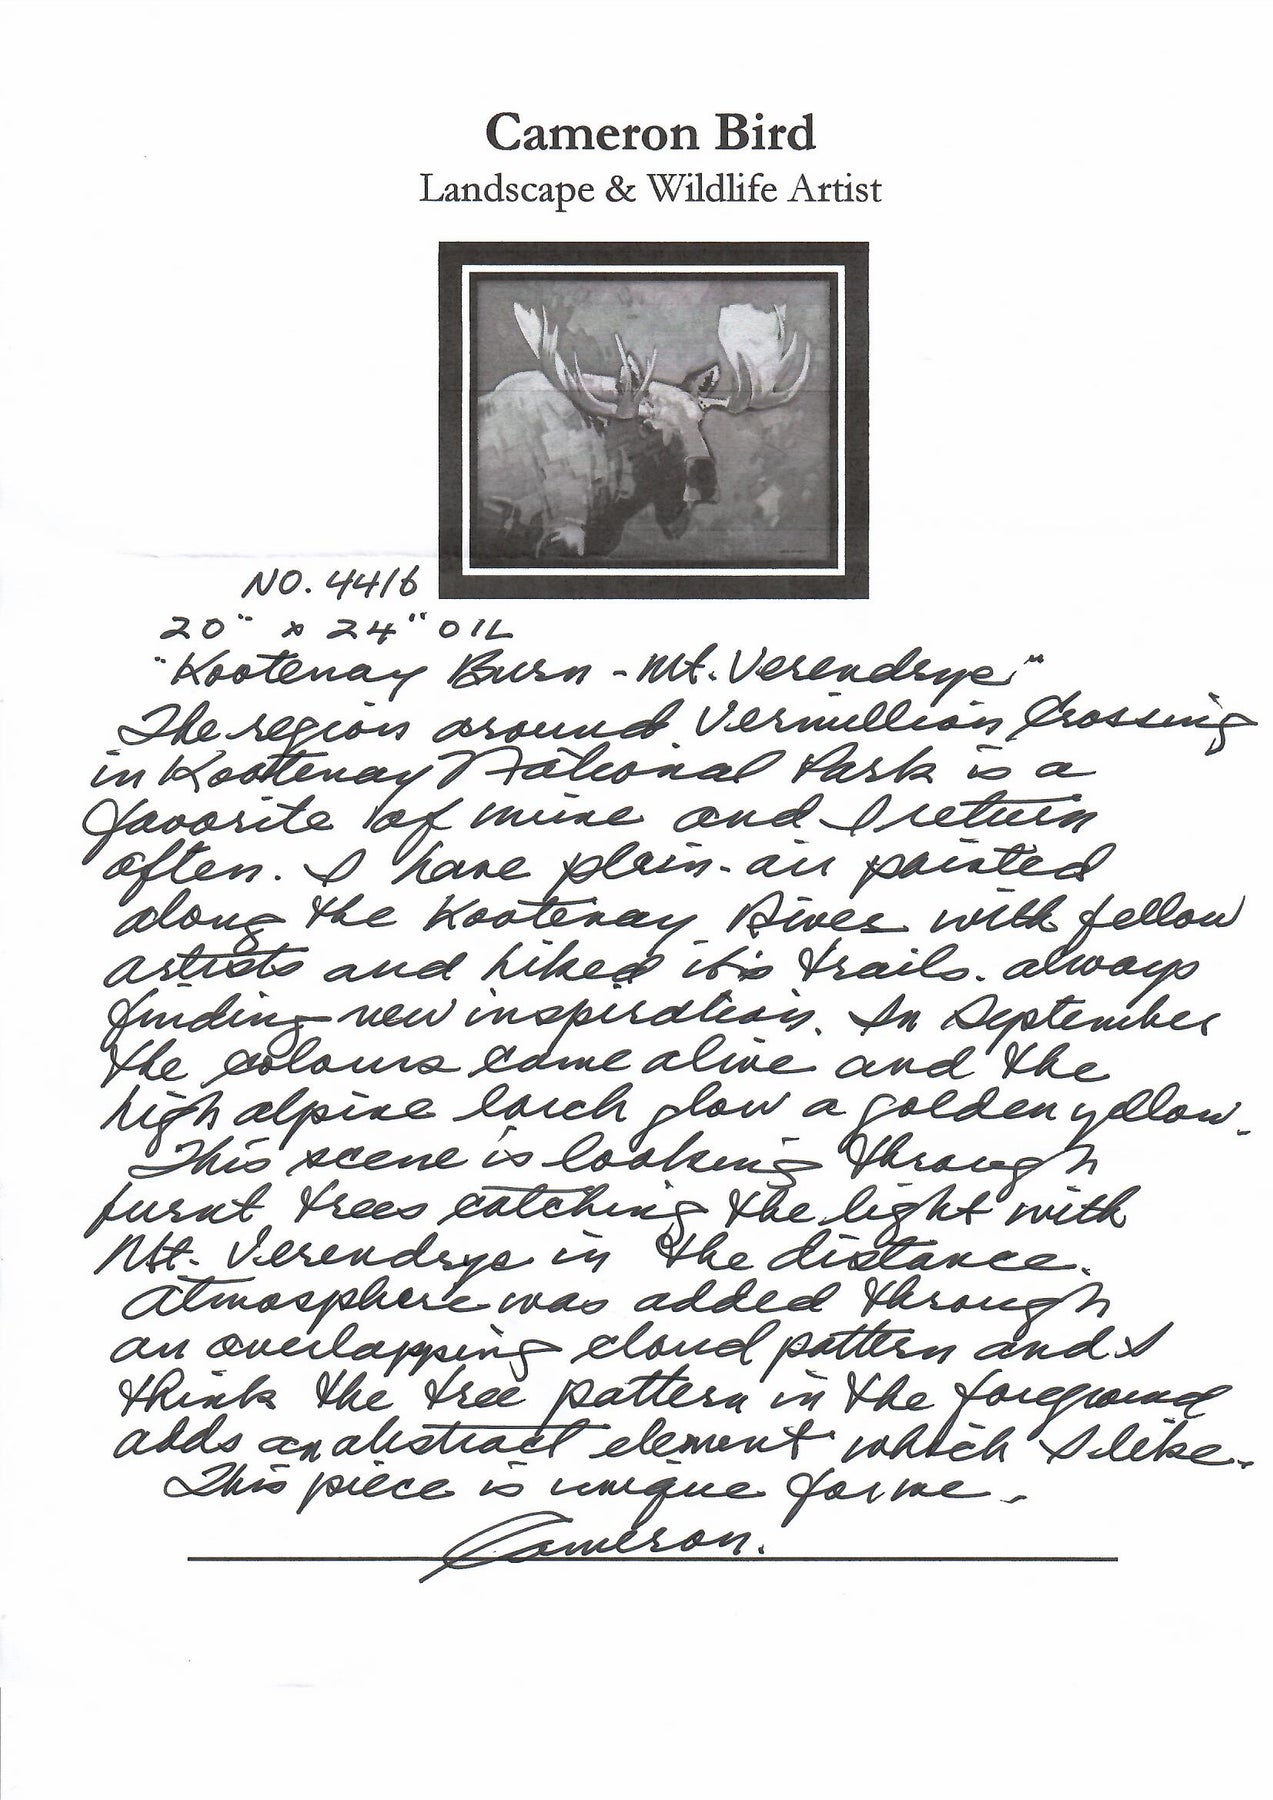 Cameron Bird
Landscape & Wildlife Artist
NO. 4416
20" x 24" OIL
"Kootenay Burn - Mt. Verendrye"
The region around Vermillion Crossing
in Kootenay National Park is a
favorite of mine and I return
often. I have plein-air painted
along the Kootenay River with fellow
artists and hiked it's trails. always
finding new inspiration. In September
the colours come alive and the
high alpine larch glow a golden yellow.
This scene is looking through
burnt trees catching the light with
Mt. Verendrye in the distance.
Atmosphere was added through
an overlapping cloud pattern and I
think the tree pattern in the foreground
adds an abstract element which I like.
This piece is unique for me.
Cameron.